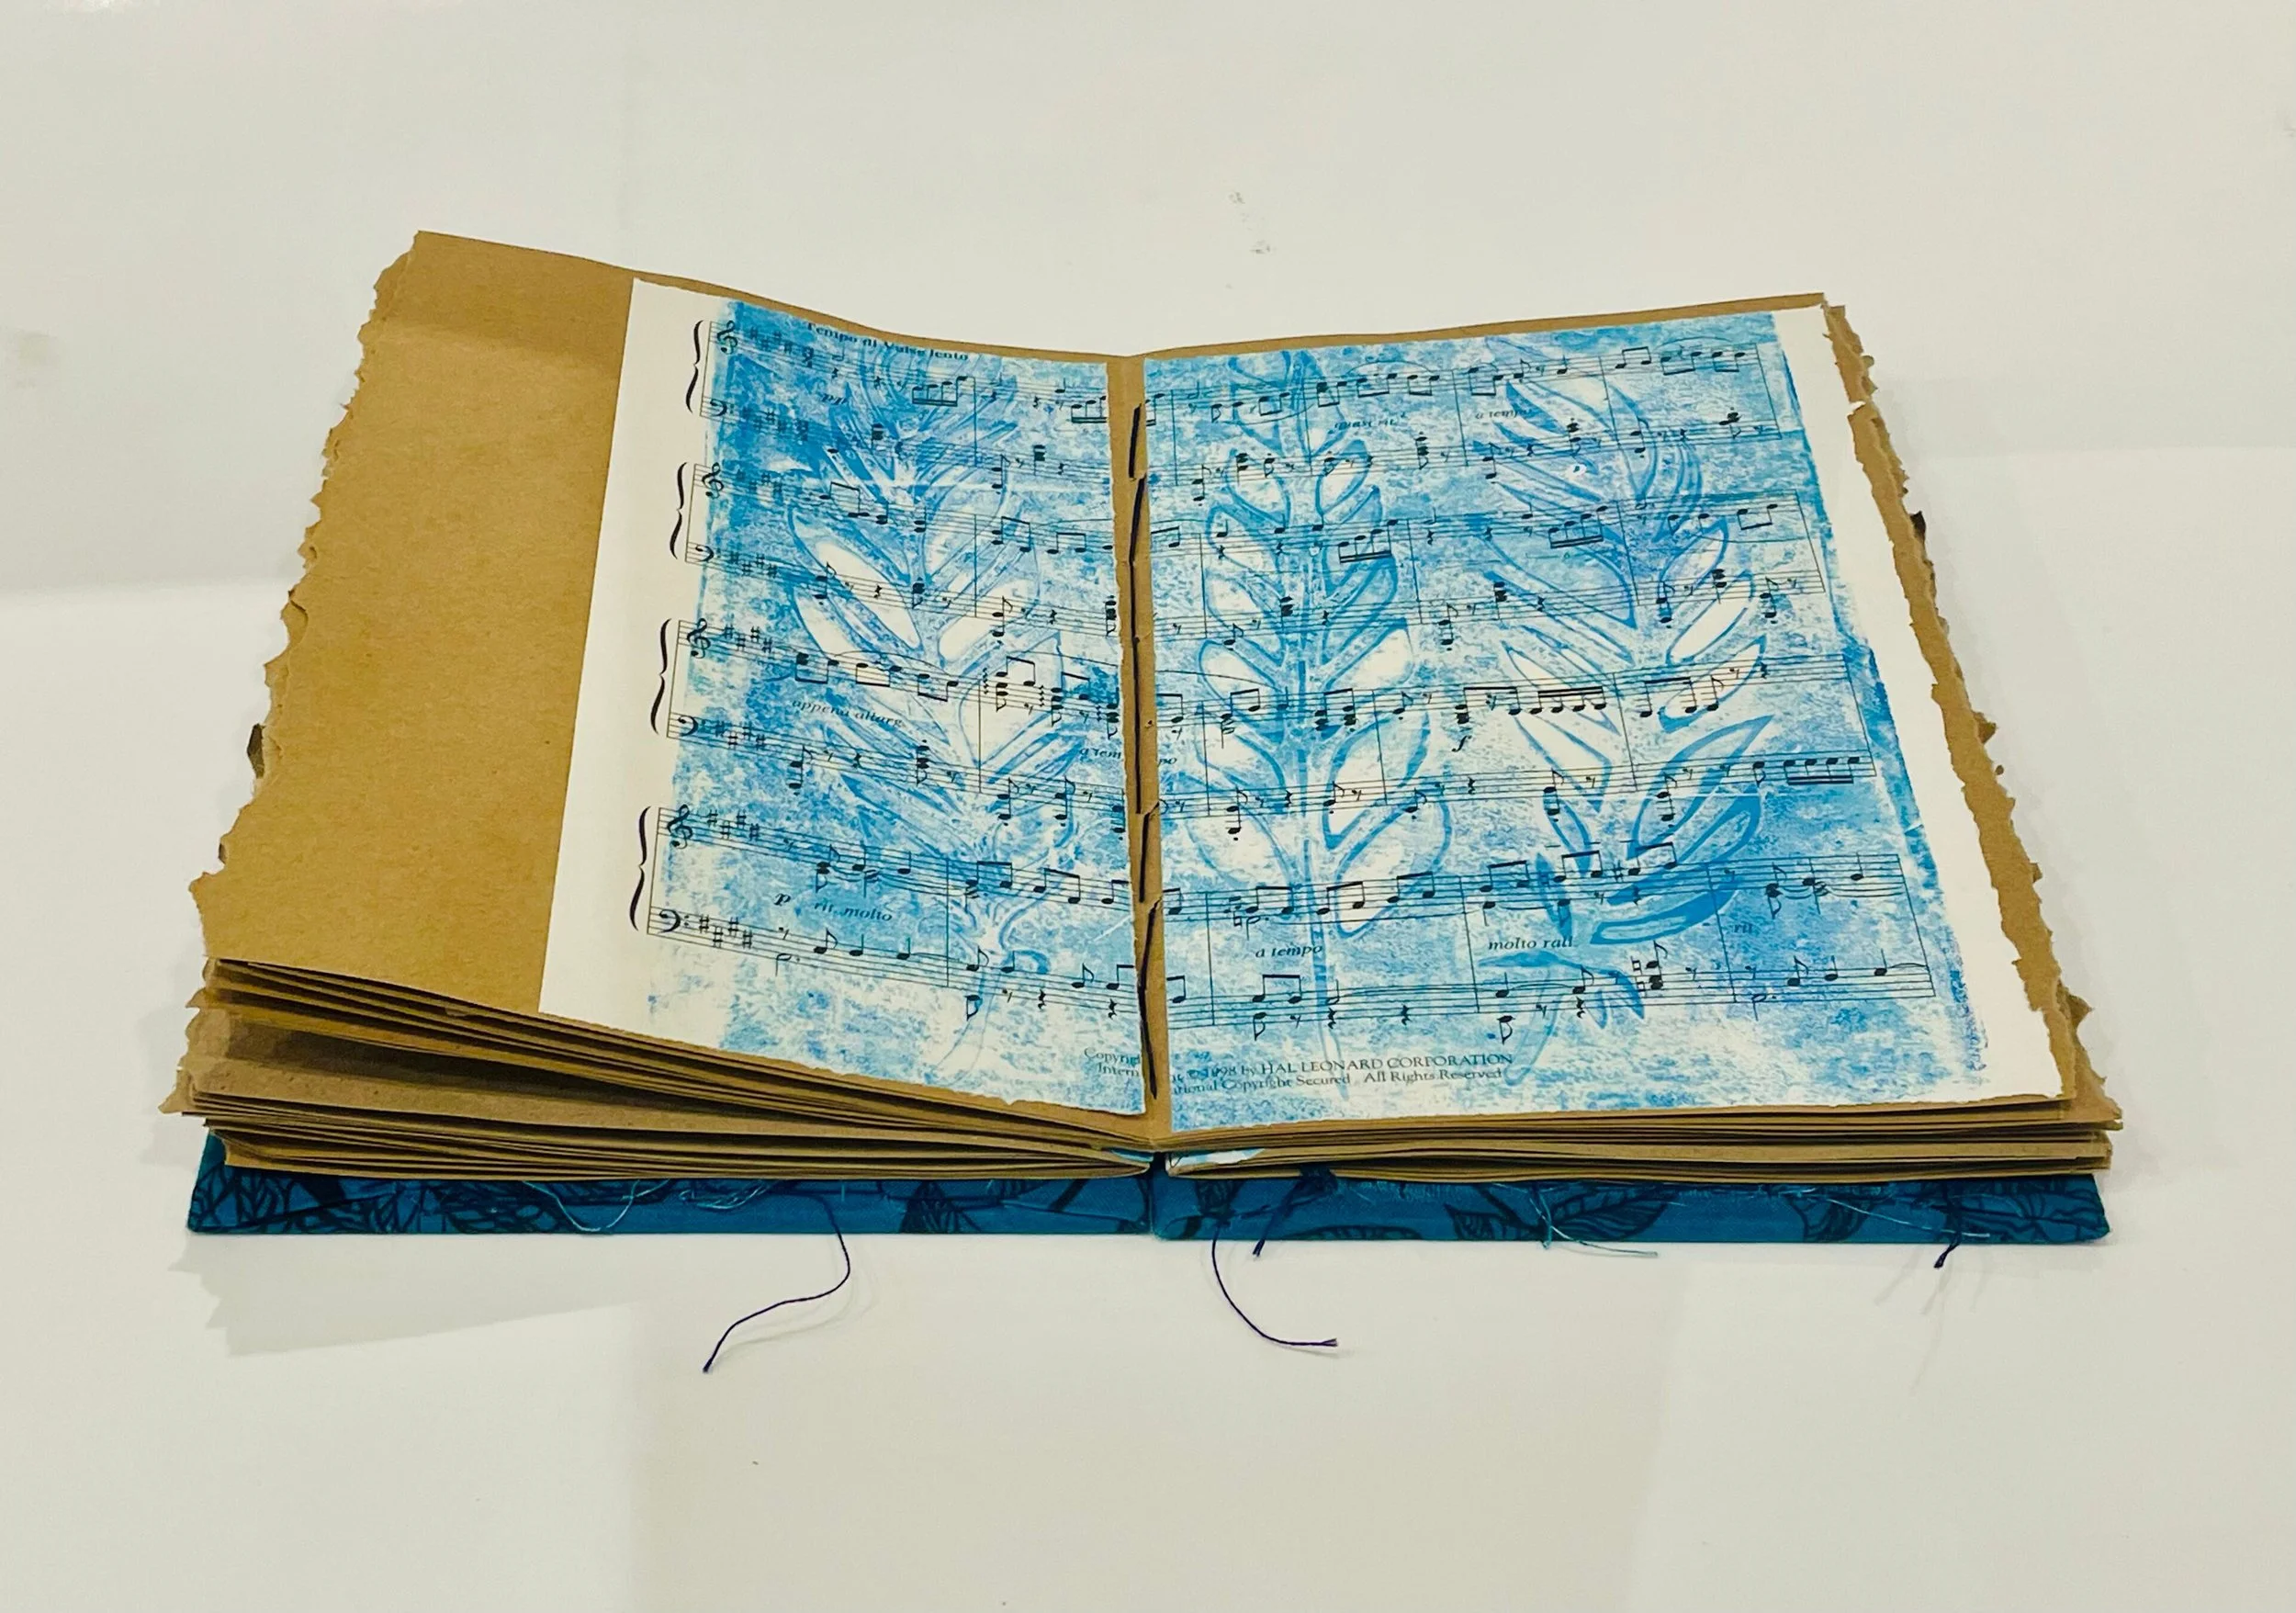 Tempo di Valse lento
pp quasi rit. a tempo
appena allarg. a tempo f
p rit. molto a tempo molto rall. rit.
Copyright © 1998 by HAL LEONARD CORPORATION
International Copyright Secured All Rights Reserved